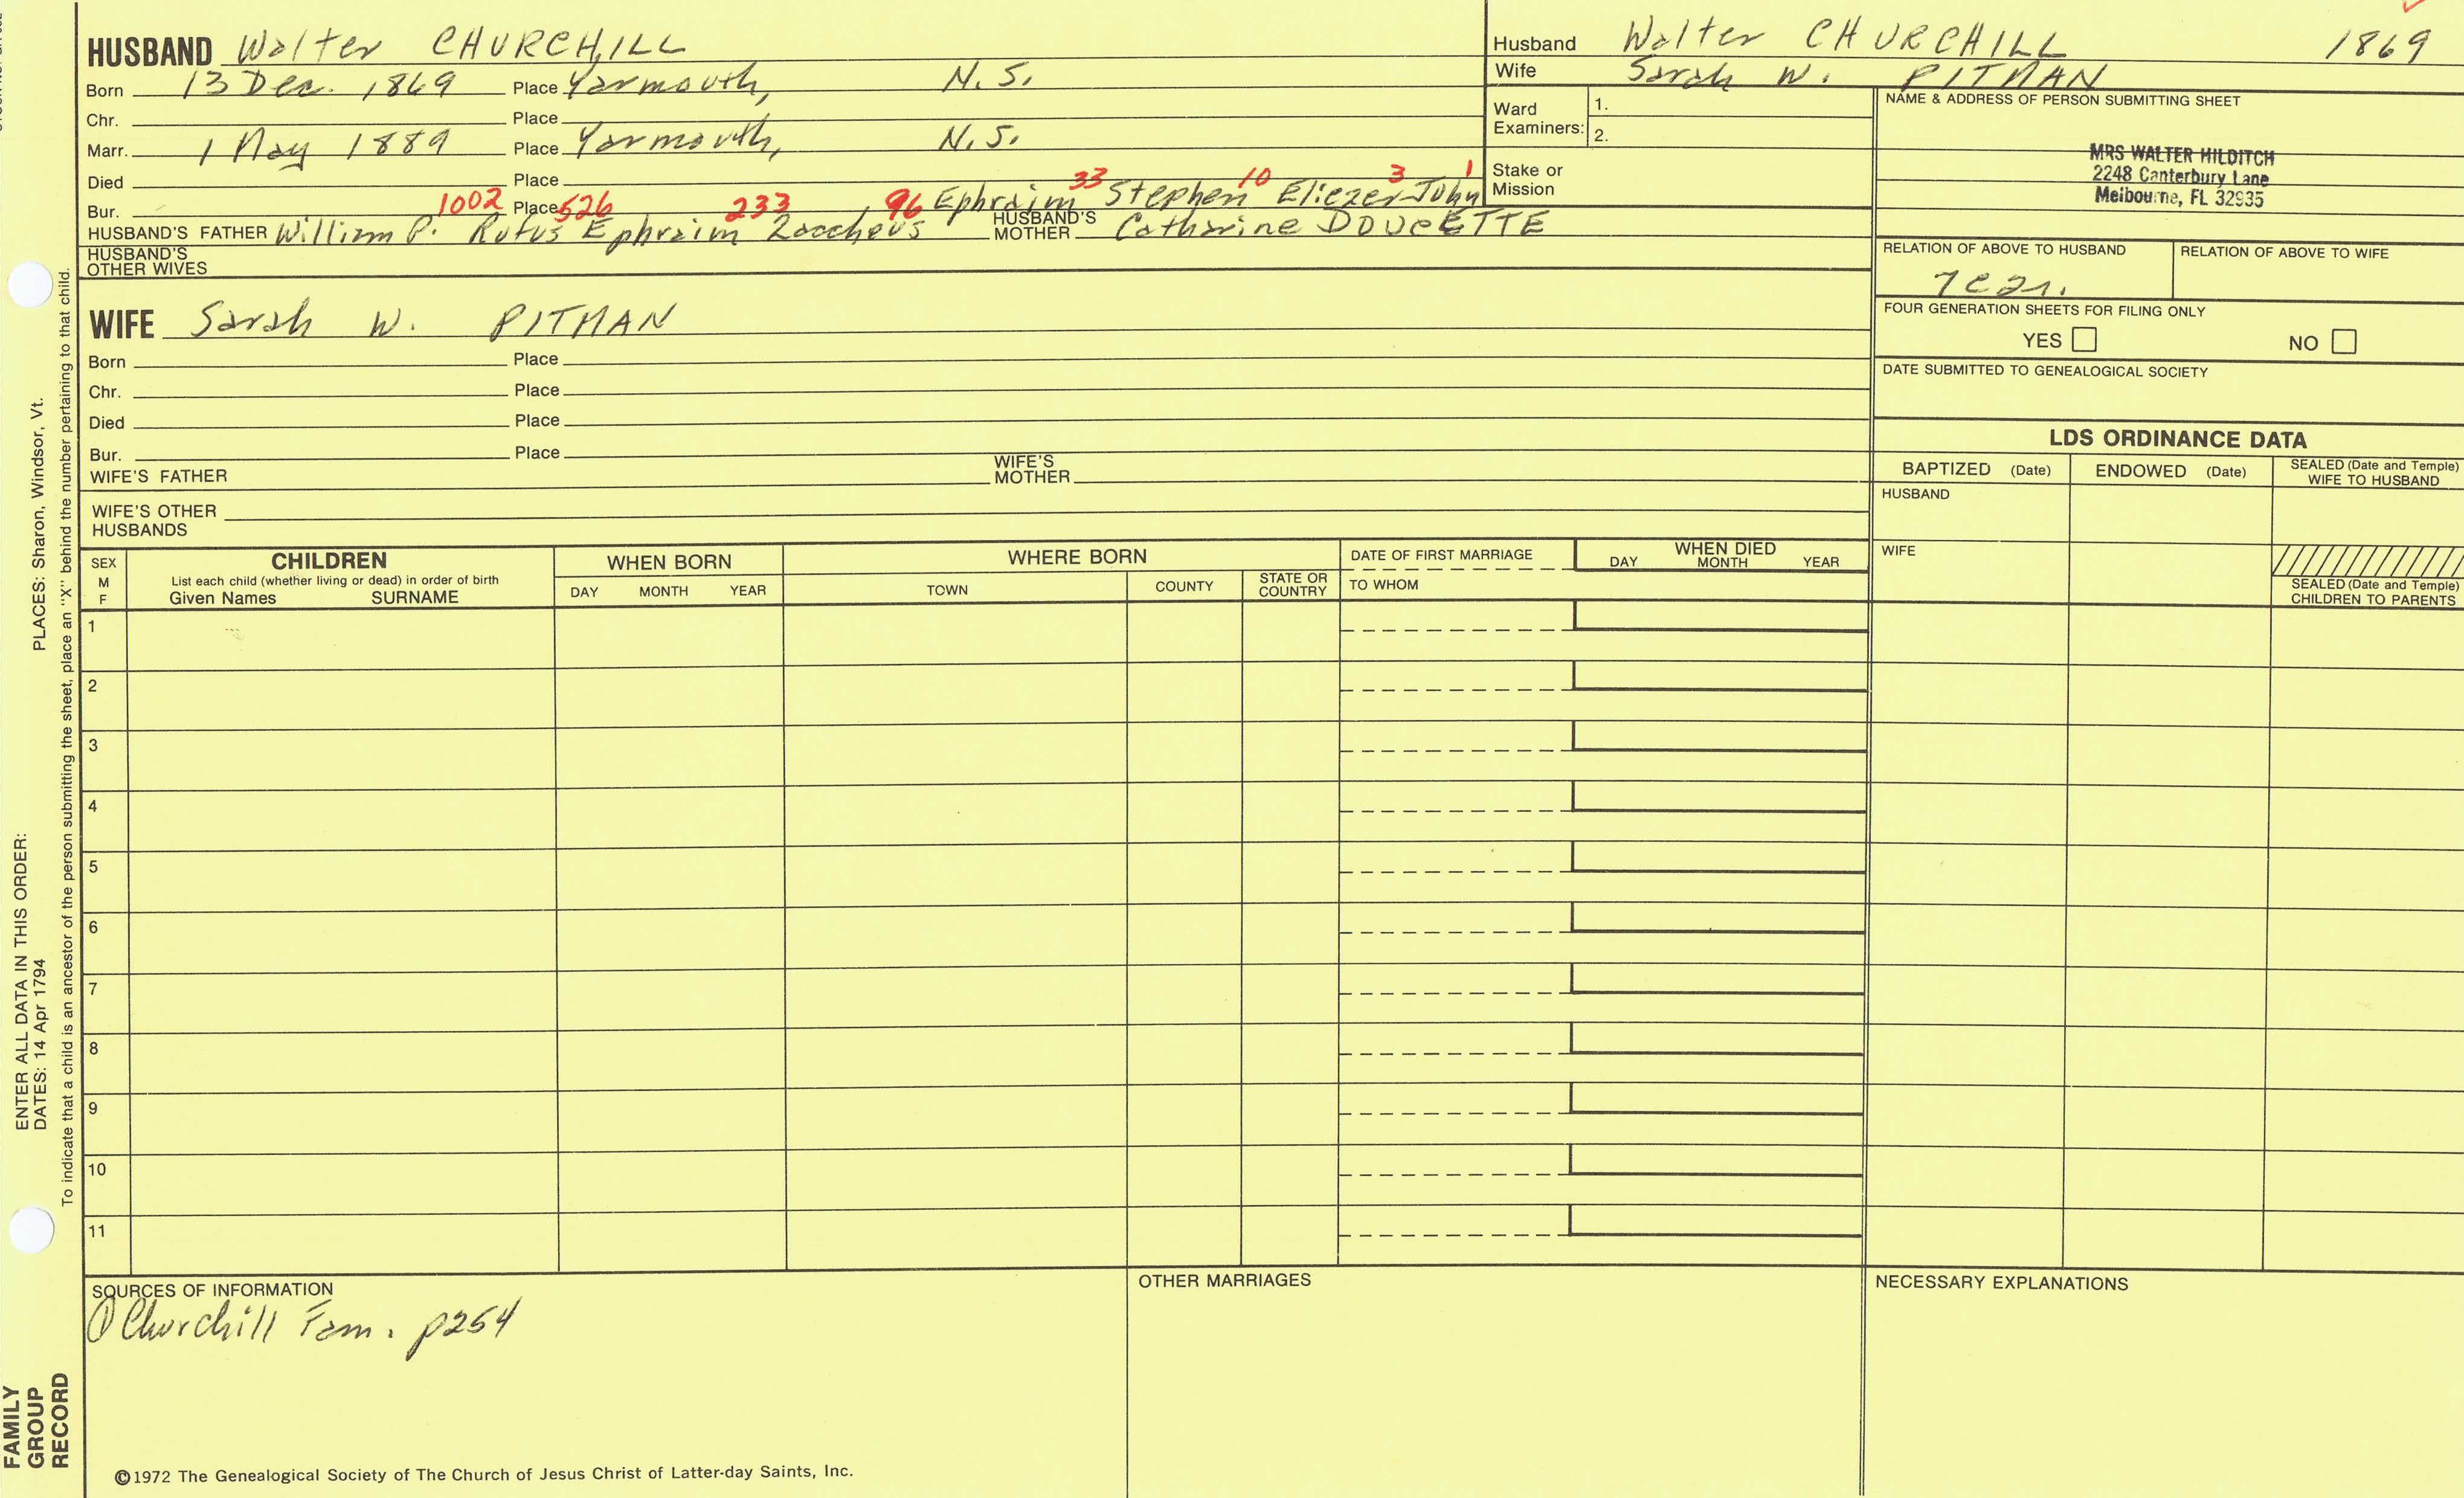 HUSBAND Walter CHURCHILL
Born 13 Dec. 1869 Place Yarmouth, N.S.
Chr. Place
Marr. 1 May 1889 Place Yarmouth, N.S.
Died Place
Bur. Place
1002 526 233 96 33 10 3 1
Ephraim Stephen Eliezer John
HUSBAND'S FATHER William P. Rufus Ephraim Zaccheus HUSBAND'S MOTHER Catharine DOUCETTE
HUSBAND'S OTHER WIVES
WIFE Sarah W. PITMAN
Born Place
Chr. Place
Died Place
Bur. Place
WIFE'S FATHER WIFE'S MOTHER
WIFE'S OTHER HUSBANDS
Husband Walter CHURCHILL 1869
Wife Sarah W. PITMAN
Ward Examiners: 1.
2.
Stake or Mission
NAME & ADDRESS OF PERSON SUBMITTING SHEET
MRS WALTER HILDITCH
2248 Canterbury Lane
Melbourne, FL 32935
RELATION OF ABOVE TO HUSBAND RELATION OF ABOVE TO WIFE
FOUR GENERATION SHEETS FOR FILING ONLY
YES NO
DATE SUBMITTED TO GENEALOGICAL SOCIETY
LDS ORDINANCE DATA
BAPTIZED (Date) ENDOWED (Date) SEALED (Date and Temple) WIFE TO HUSBAND
HUSBAND
WIFE
SEALED (Date and Temple) CHILDREN TO PARENTS
SEX M F
CHILDREN
List each child (whether living or dead) in order of birth
Given Names SURNAME
WHEN BORN
DAY MONTH YEAR
WHERE BORN
TOWN COUNTY STATE OR COUNTRY
DATE OF FIRST MARRIAGE
TO WHOM
WHEN DIED
DAY MONTH YEAR
1
2
3
4
5
6
7
8
9
10
11
SOURCES OF INFORMATION
① Churchill Fam. p254
OTHER MARRIAGES
NECESSARY EXPLANATIONS
©1972 The Genealogical Society of The Church of Jesus Christ of Latter-day Saints, Inc.
ENTER ALL DATA IN THIS ORDER:
DATES: 14 Apr 1794 PLACES: Sharon, Windsor, Vt.
To indicate that a child is an ancestor of the person submitting the sheet, place an "X" behind the number pertaining to that child.
FAMILY
GROUP
RECORD